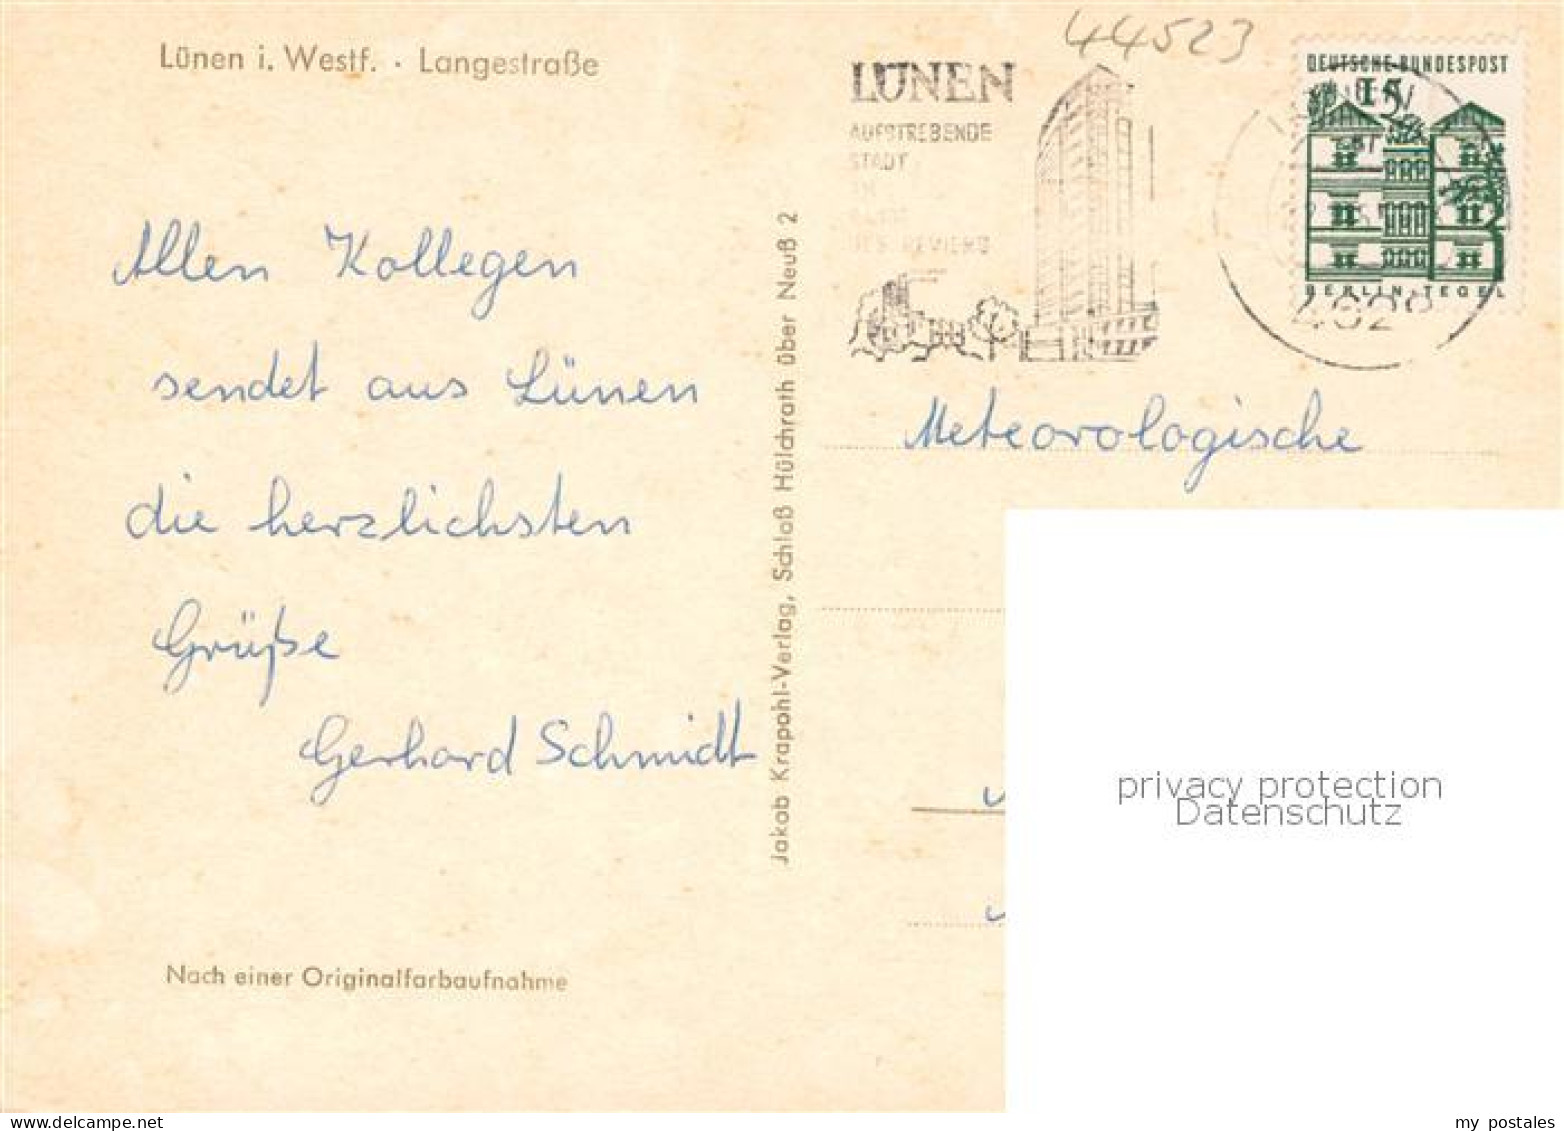 Lünen i. Westf. · Langestraße
44523
LÜNEN
AUFSTREBENDE
STADT
DES REVIERS
DEUTSCHE BUNDESPOST
15
BERLIN-TEGEL
Allen Kollegen
sendet aus Lünen
die herzlichsten
Grüße
Gerhard Schmidt
Jakob Krapohl-Verlag, Schloß Hülchrath über Neuß 2
Meteorologische
privacy protection
Datenschutz
Nach einer Originalfarbaufnahme
delcampe.net
my_postales